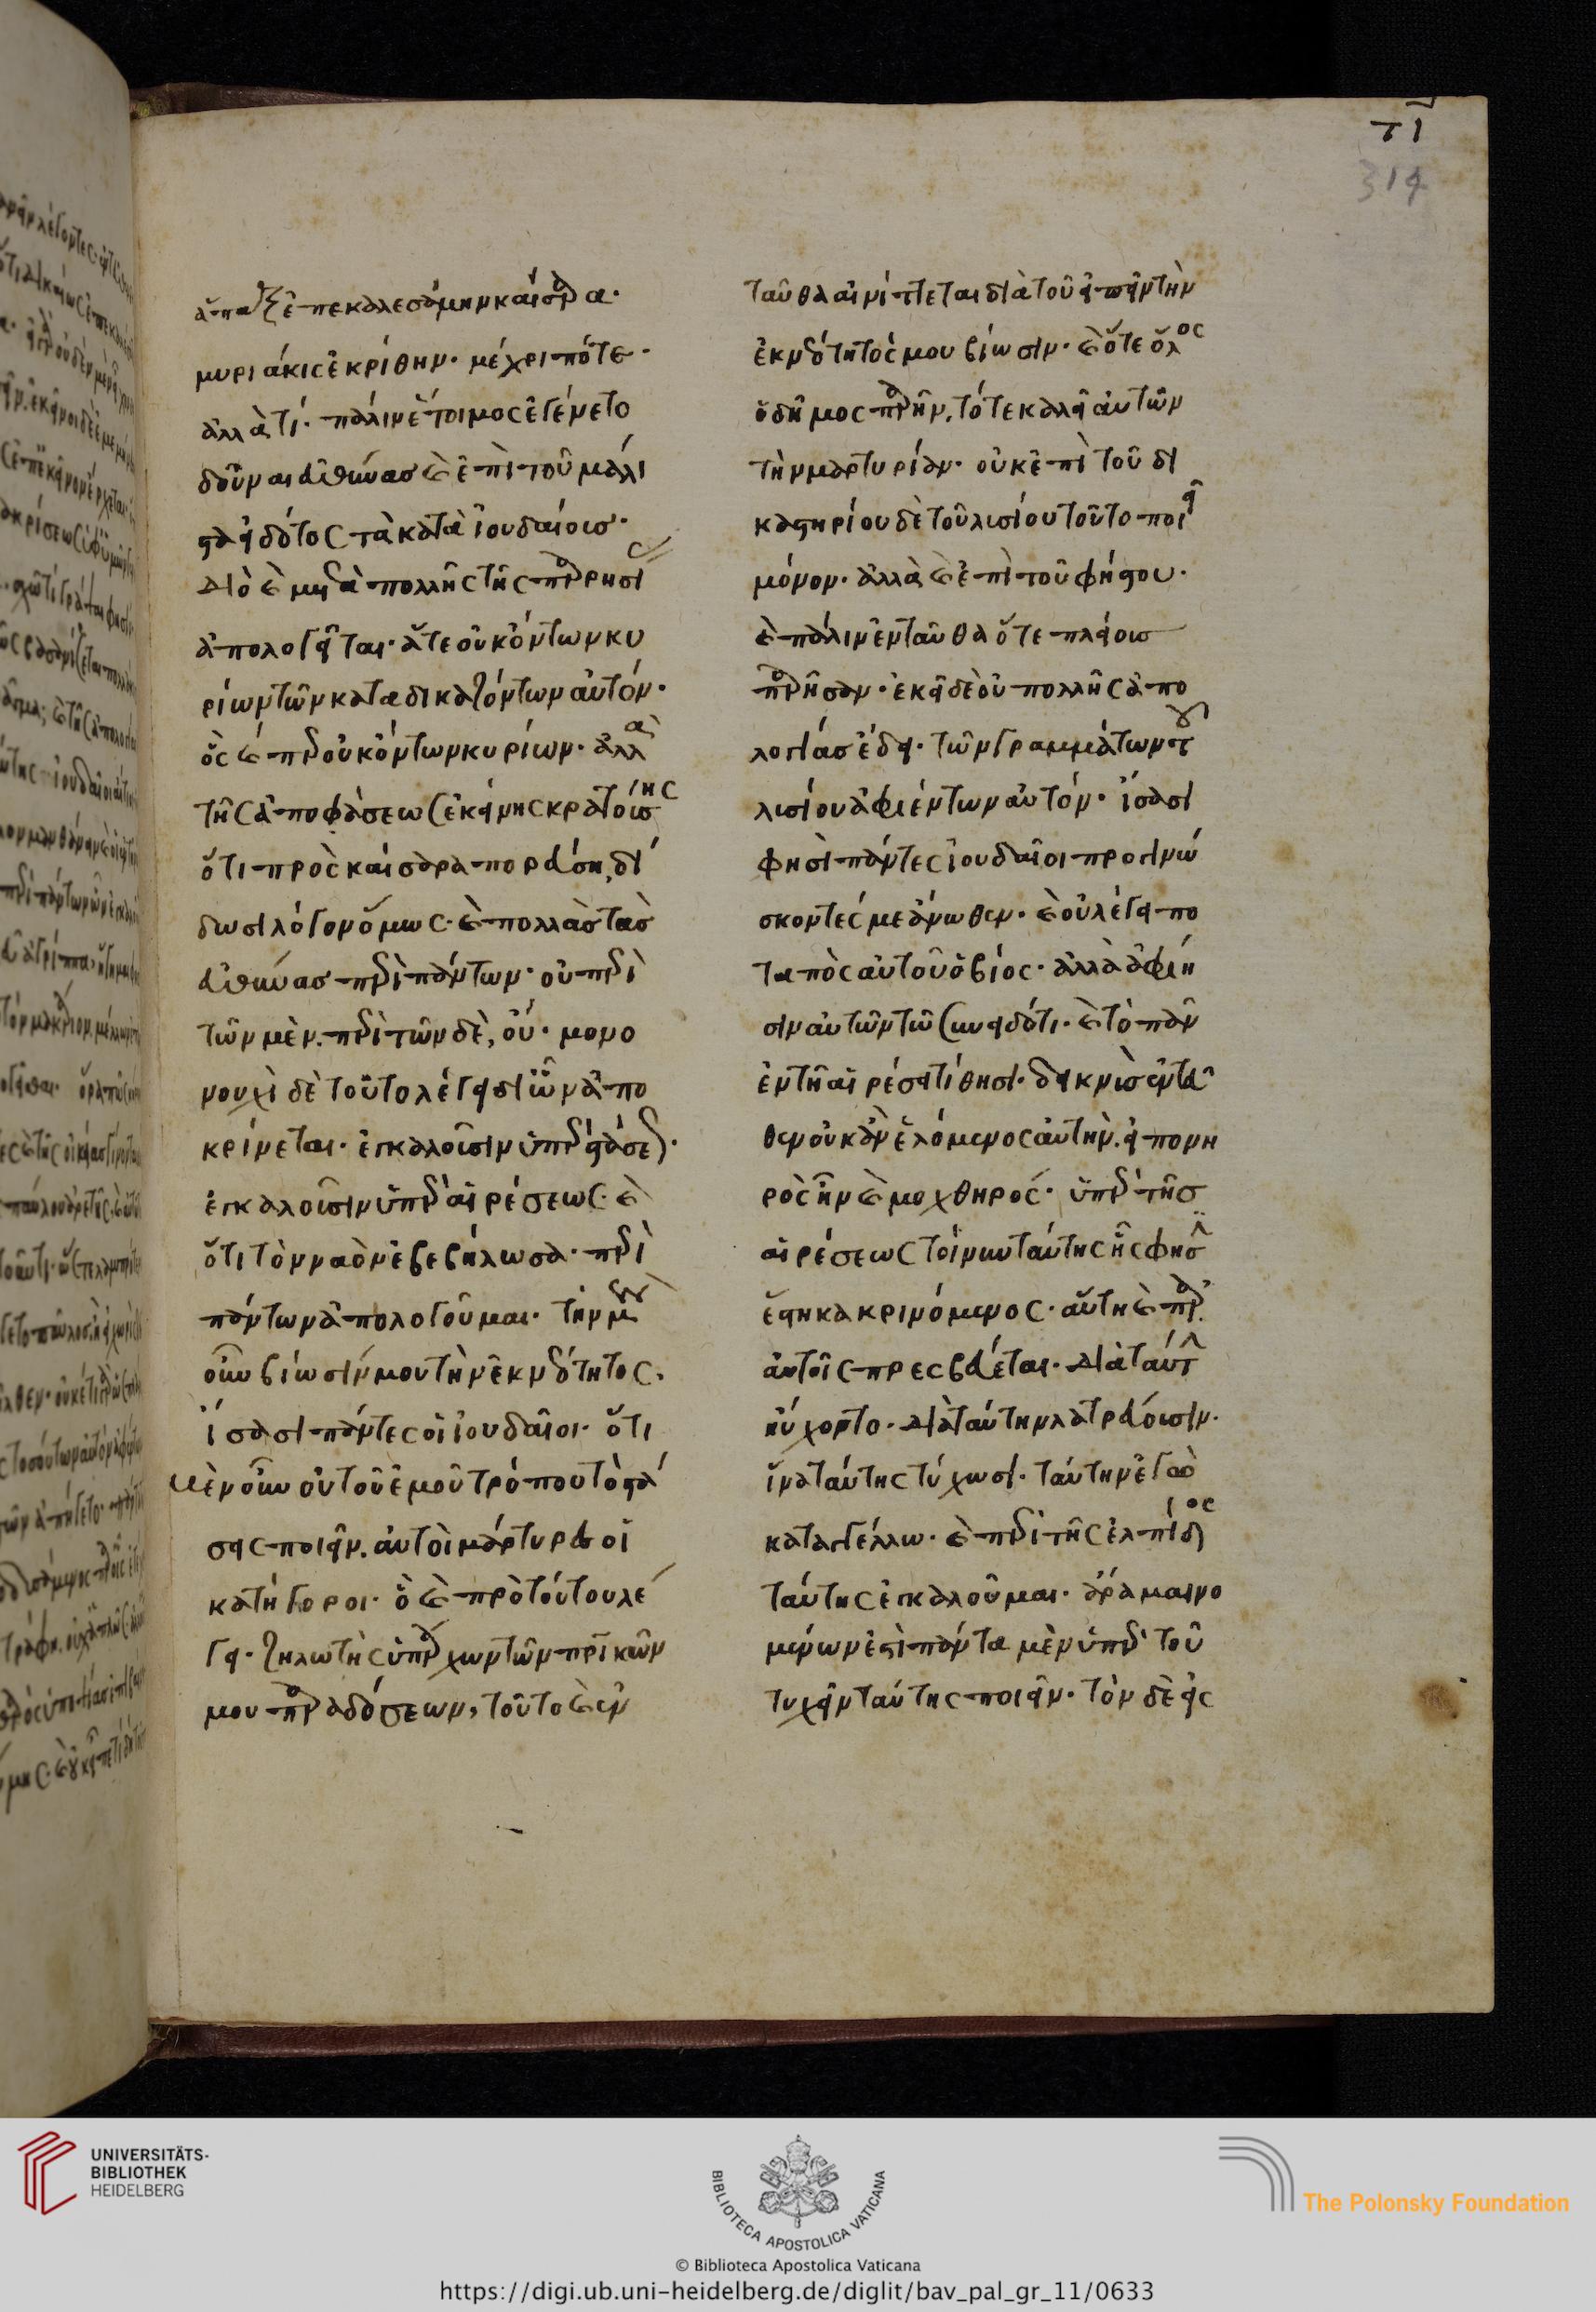 τι
314
ἅπαξ ἐπεκαλεσάμην καίσαρα·
μυριάκις ἐκρίθην· μέχρι πότε·
ἀλλὰ τί· πάλιν ἕτοιμος ἐγένετο
δοῦναι εὐθύνας καὶ ἐπὶ τοῦ μάλι
στα εἰδότος τὰ κατὰ ἰουδαίους·
διὸ καὶ μετὰ πολλῆς τῆς παρρησί
ἀπολογεῖται· ἅτε οὐκ ὄντων κυ
ρίων τῶν καταδικαζόντων αὐτόν·
ὃς καὶ περ οὐκ ὄντων κυρίων· ἀλλὰ
τῆς ἀποφάσεως ἐκείνης κρατούσης
ὅτι πρὸς καίσαρα πορεύση, δί
δωσι λόγον ὅμως· καὶ πολλὰς τὰς
εὐθύνας περὶ πάντων· οὐ περὶ
τῶν μὲν. περὶ τῶν δὲ, οὔ· μονο
νουχὶ δὲ τοῦτο λέγει δι' ὧν ἀπο
κρίνεται· ἐγκαλοῦσιν ὑπὲρ στάσεως·
ἐγκαλοῦσιν ὑπὲρ αἱρέσεως· καὶ
ὅτι τὸν ναὸν ἐβεβήλωσα· περὶ
πάντων ἀπολογοῦμαι· τὴν μὲν
οὖν βίωσίν μου τὴν ἐκ νεότητος.
ἴσασι πάντες οἱ ἰουδαῖοι· ὅτι
μὲν οὖν οὐ τοῦ ἐμοῦ τρόπου τὸ στά
σεις ποιεῖν. αὐτοὶ μάρτυρες οἱ
κατήγοροι· ὃ καὶ πρὸ τούτου λέ
γει· ζηλωτὴς ὑπάρχων τῶν πατρικῶν
μου παραδόσεων, τοῦτο καὶ ἐν
ταῦθα αἰνίττεται διὰ τοῦ εἰπεῖν τὴν
ἐκ νεότητός μου βίωσιν· καὶ ὅτε ὅλος
ὁ δῆμος παρῆν, τότε καλεῖ αὐτῶν
τὴν μαρτυρίαν· οὐκ ἐπὶ τοῦ δι
καστηρίου δὲ τοῦ λυσίου τοῦτο ποιεῖ
μόνον· ἀλλὰ καὶ ἐπὶ τοῦ φήστου·
καὶ πάλιν ἐνταῦθα ὅτε πλείους
παρῆσαν· ἐκεῖ δὲ οὐ πολλῆς ἀπο
λογίας ἔδει· τῶν γραμμάτων τοῦ
λυσίου ἀφιέντων αὐτόν· ἴσασι
φησὶ πάντες ἰουδαῖοι προγινώ
σκοντές με ἄνωθεν· καὶ οὐ λέγει πο
ταπὸς αὐτοῦ ὁ βίος· ἀλλὰ ἀφίη
σιν αὐτῶν τῶ συνειδότι· καὶ τὸ πᾶν
ἐν τῆ αἱρέσει τίθησι· δεικνὺς ἐντεῦ
θεν οὐκ ἂν ἑλόμενος αὐτὴν. εἰ πονη
ρὸς ἦν καὶ μοχθηρός· ὑπὲρ τῆς
αἱρέσεως τοίνυν ταύτης ἧς φησὶν
ἕστηκα κρινόμενος· αὕτη καὶ παρ'
αὐτοῖς πρεσβεύεται· διὰ ταύτην
ηὔχοντο· διὰ ταύτην λατρεύουσιν·
ἵνα ταύτης τύχωσι· ταύτην ἐγὼ
καταγγέλλω· καὶ περὶ τῆς ἐλπίδος
ταύτης ἐγκαλοῦμαι· ἄρα μαινο
μένων ἐστὶ πάντα μὲν ὑπὲρ τοῦ
τυχεῖν ταύτης ποιεῖν· τὸν δὲ εἰς
UNIVERSITÄTS-
BIBLIOTHEK
HEIDELBERG
BIBLIOTECA APOSTOLICA VATICANA
The Polonsky Foundation
© Biblioteca Apostolica Vaticana
https://digi.ub.uni-heidelberg.de/diglit/bav_pal_gr_11/0633